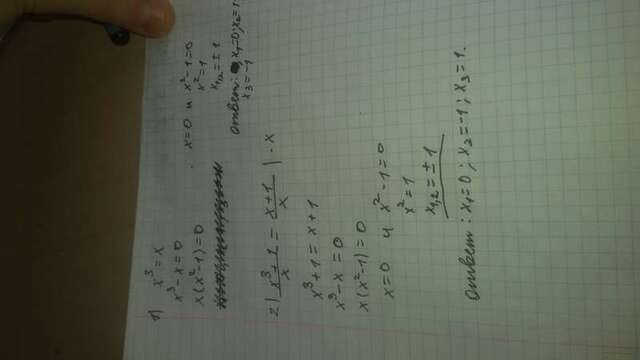 1) x³ = x
x³ - x = 0
x(x² - 1) = 0
x = 0 и x² - 1 = 0
x² = 1
x₁,₂ = ± 1
Ответ: x₁ = 0; x₂ = 1
x₃ = -1
2) (x³ + 1)/x = (x + 1)/x | · x
x³ + 1 = x + 1
x³ - x = 0
x(x² - 1) = 0
x = 0 и x² - 1 = 0
x² = 1
x₁,₂ = ± 1
Ответ: x₁ = 0; x₂ = -1; x₃ = 1.